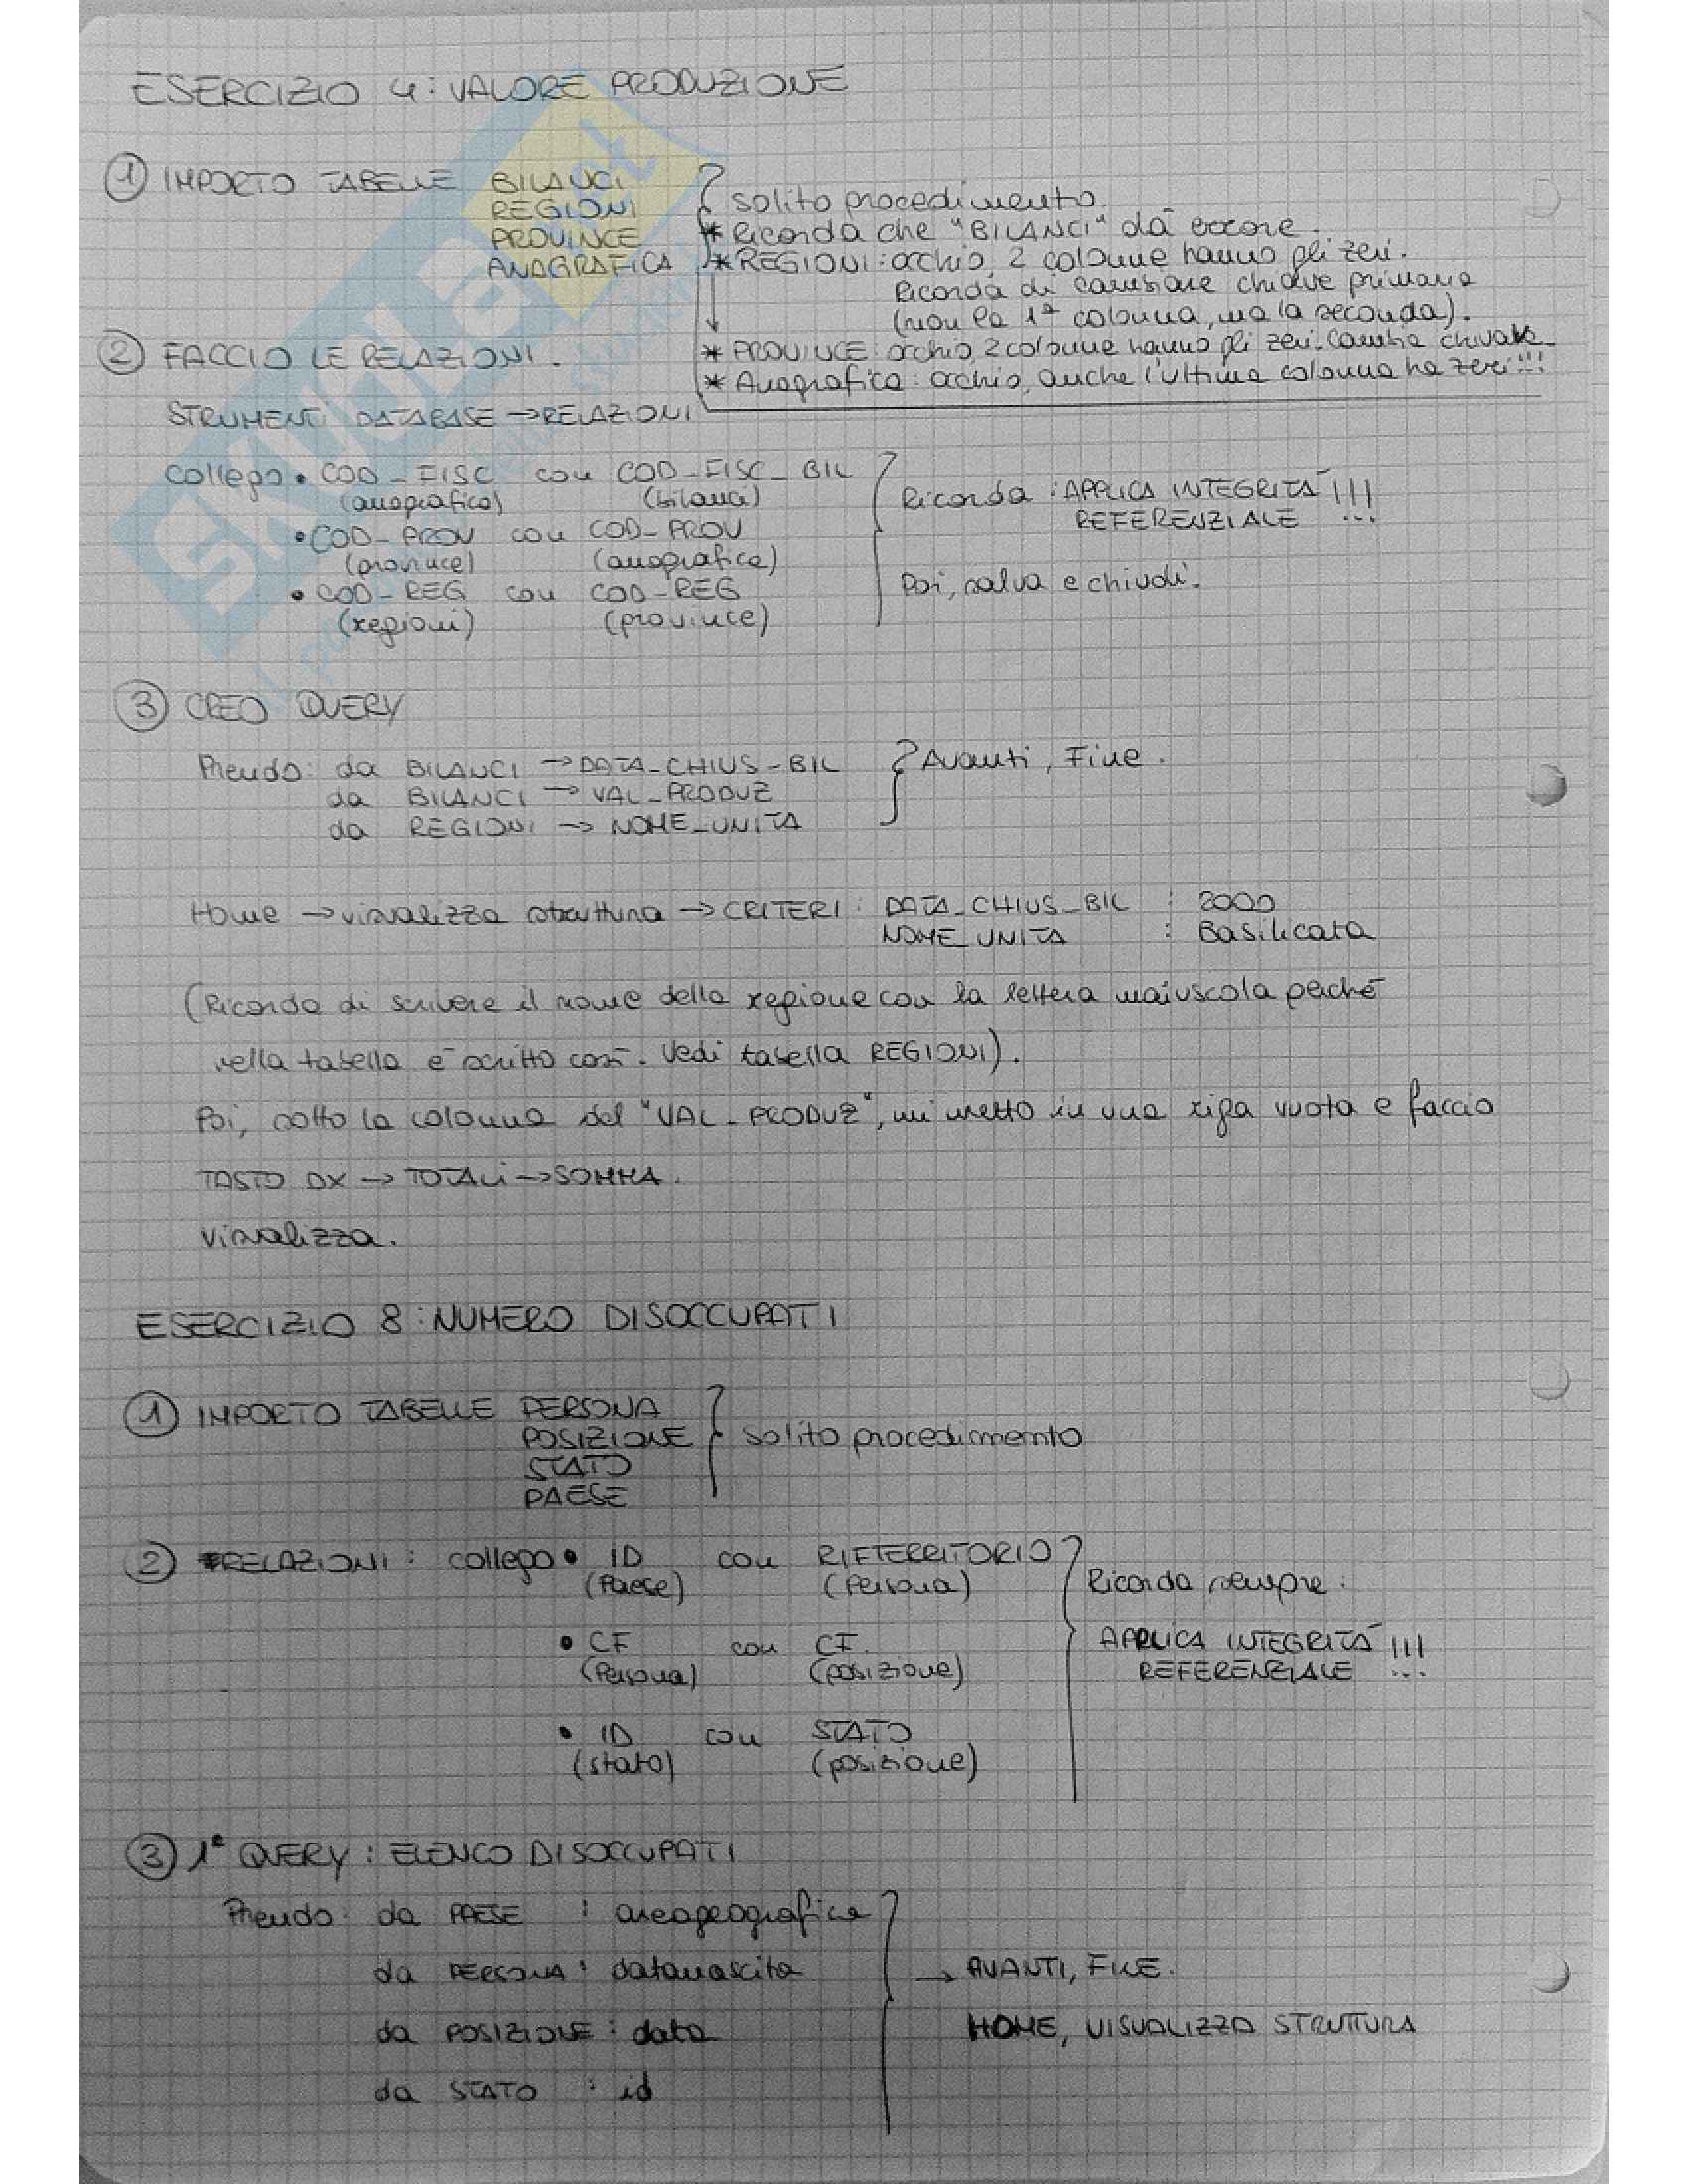 ESERCIZIO 4: VALORE PRODUZIONE
① IMPORTO TABELLE BILANCI
REGIONI
PROVINCE
ANAGRAFICA
solito procedimento.
* Ricorda che "BILANCI" dà errore.
* REGIONI: occhio, 2 colonne hanno gli zeri.
Ricorda di cambiare chiave primaria
(non la 1ª colonna, ma la seconda).
* PROVINCE: occhio, 2 colonne hanno gli zeri. Cambia chiave
* Anagrafica: occhio, anche l'ultima colonna ha zeri!!!
② FACCIO LE RELAZIONI.
STRUMENTI DATABASE → RELAZIONI
Collego • COD_FISC con COD_FISC_BIL
(anagrafica) (bilanci)
• COD_PROV con COD_PROV
(province) (anagrafica)
• COD_REG con COD_REG
(regioni) (province)
Ricorda: APPLICA INTEGRITÀ !!!
REFERENZIALE
Poi, salva e chiudi.
③ CREO QUERY
Prendo: da BILANCI → DATA_CHIUS_BIL
da BILANCI → VAL_PRODUZ
da REGIONI → NOME_UNITA
Avanti, Fine.
Home → visualizza struttura → CRITERI: DATA_CHIUS_BIL : 2000
NOME_UNITA : Basilicata
(Ricorda di scrivere il nome della regione con la lettera maiuscola perché
nella tabella è scritto così. Vedi tabella REGIONI).
Poi, sotto la colonna del "VAL_PRODUZ", mi metto in una riga vuota e faccio
TASTO DX → TOTALI → SOMMA.
Visualizza.
ESERCIZIO 8: NUMERO DISOCCUPATI
① IMPORTO TABELLE PERSONA
POSIZIONE
STATO
PAESE
solito procedimento
② RELAZIONI: collego • ID con RIFTERRITORIO
(Paese) (Persona)
• CF con CF.
(Persona) (posizione)
• ID con STATO
(stato) (posizione)
Ricorda sempre:
APPLICA INTEGRITÀ !!!
REFERENZIALE
③ 1ª QUERY: ELENCO DISOCCUPATI
Prendo: da PAESE : areageografica
da PERSONA : datanascita
da POSIZIONE : data
da STATO : id
→ AVANTI, FINE.
HOME, VISUALIZZA STRUTTURA